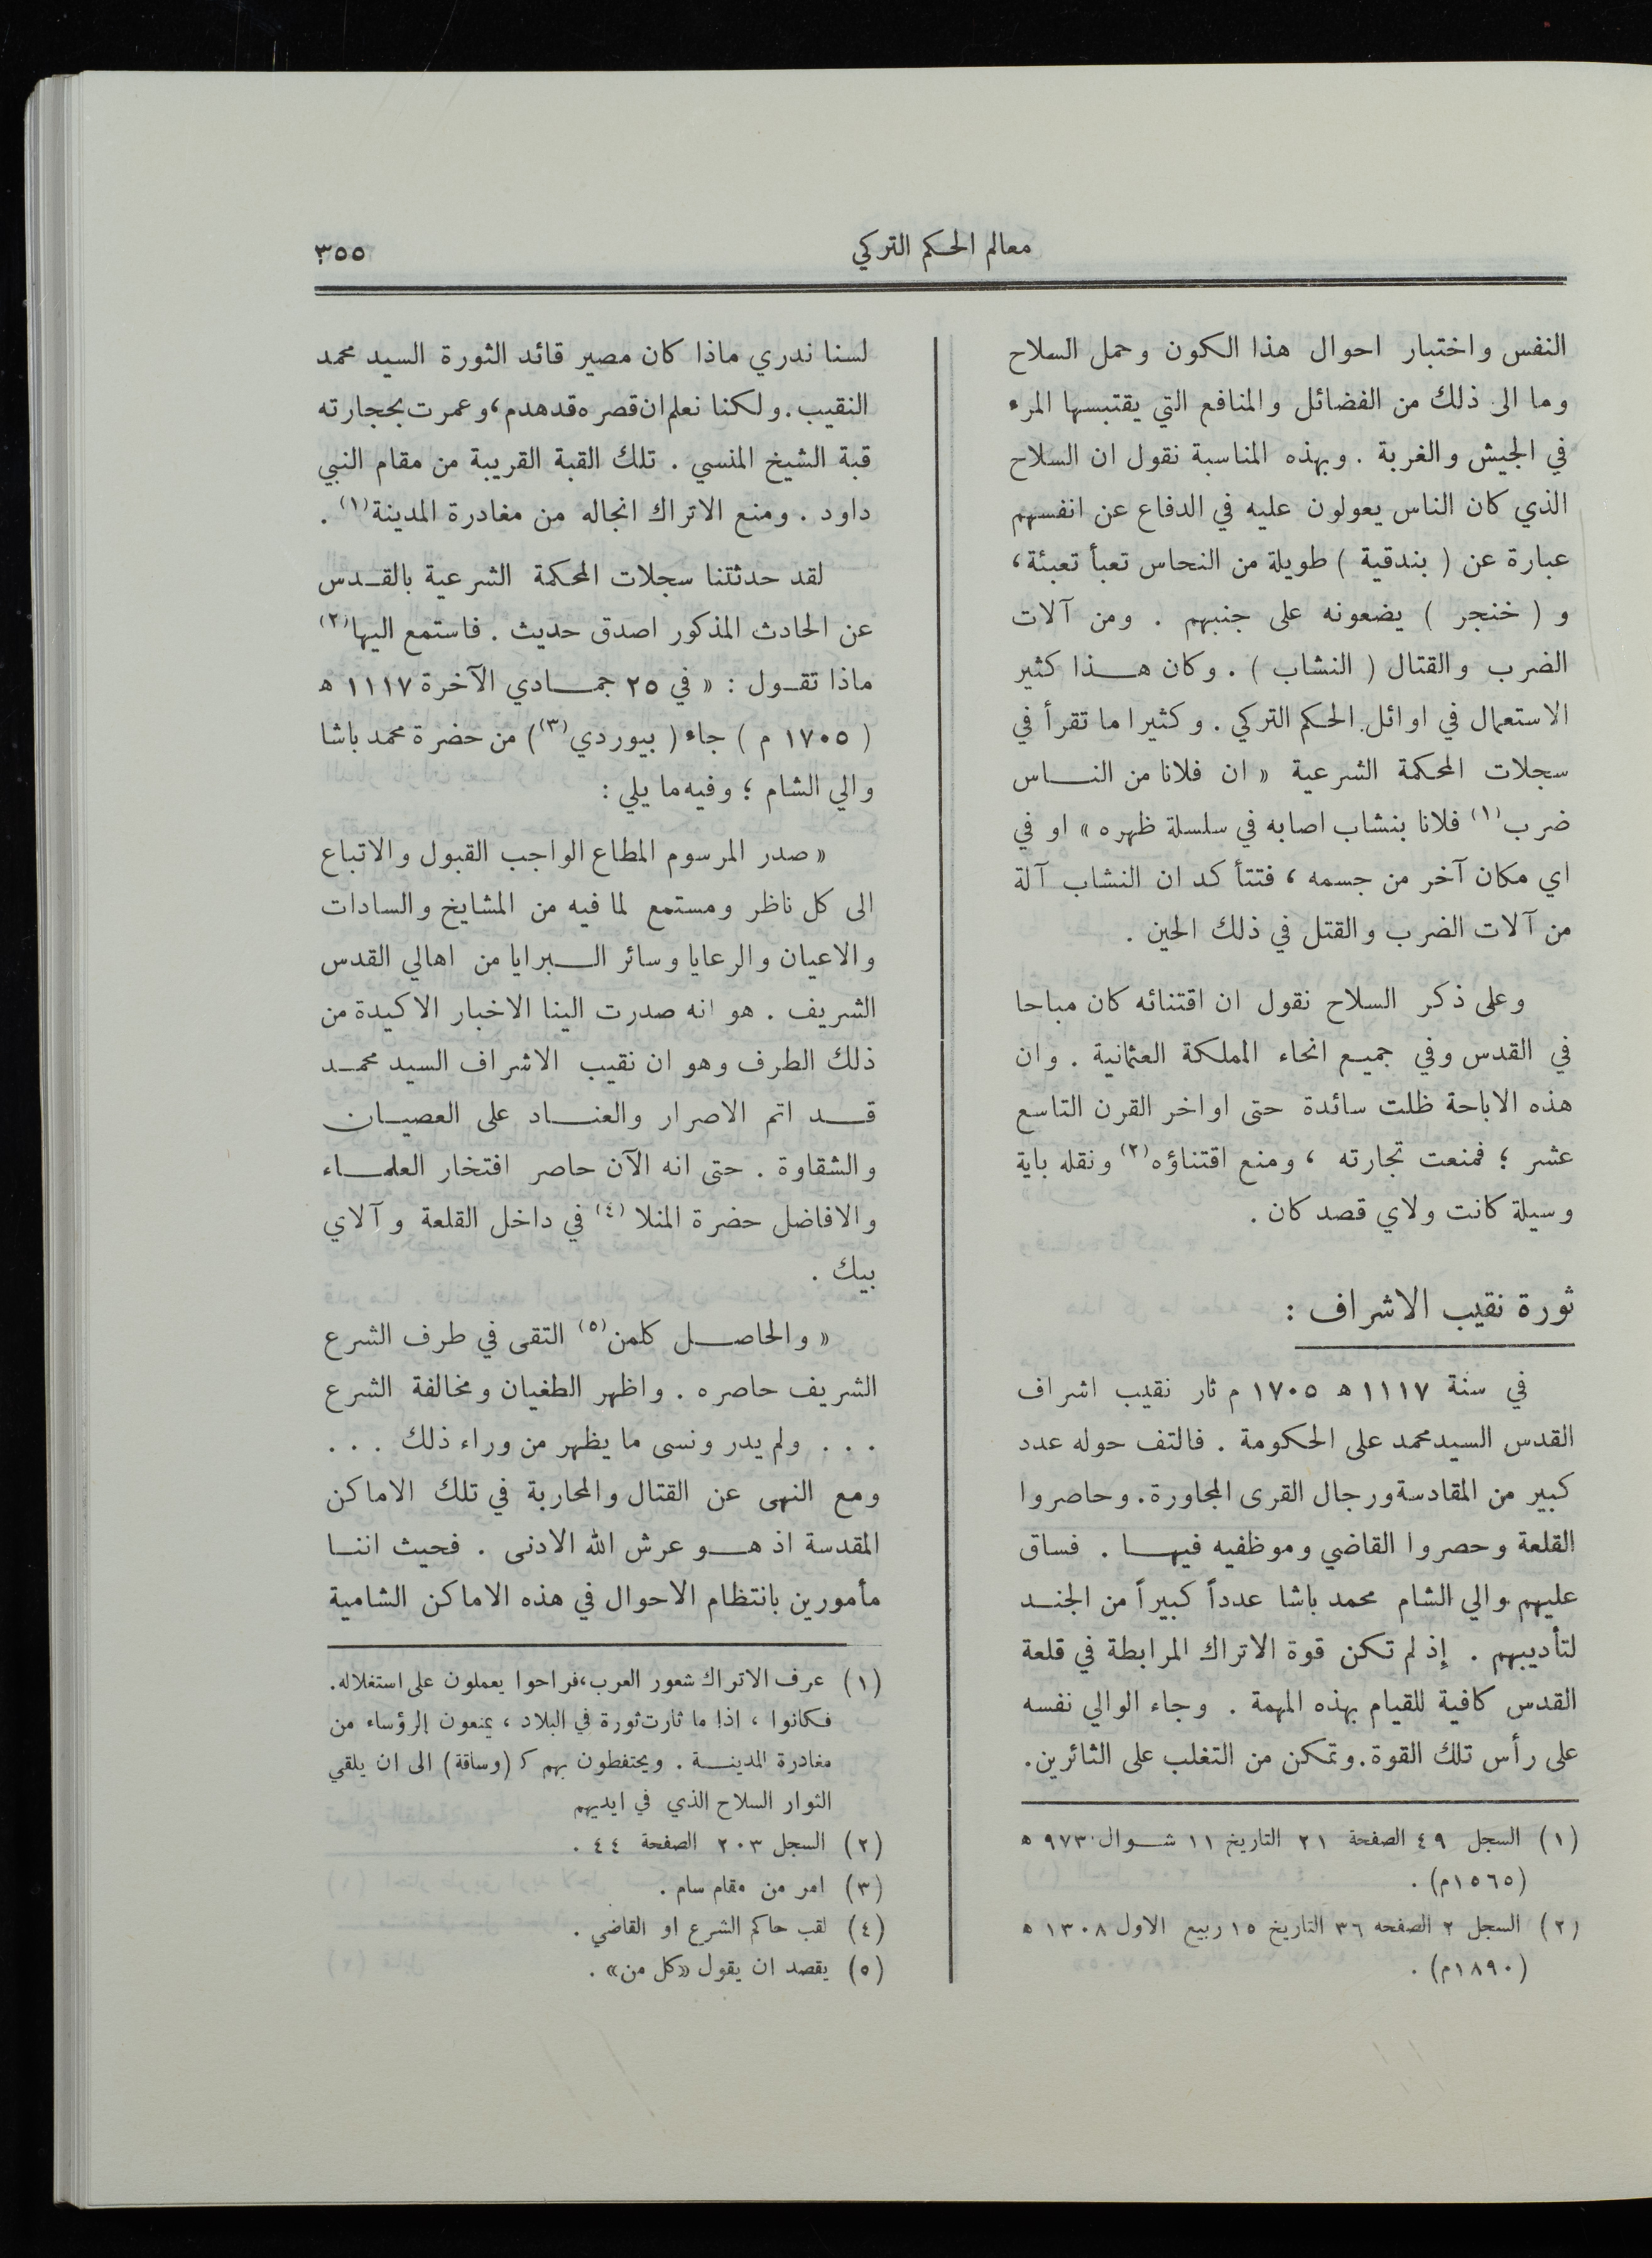 معالم الحكم التركي
٣٥٥
النفس واختبار احوال هذا الكون وحمل السلاح
وما الى ذلك من الفضائل والمنافع التي يقتبسها المرء
في الجيش والغربة . وبهذه المناسبة نقول ان السلاح
الذي كان الناس يعولون عليه في الدفاع عن انفسهم
عبارة عن ( بندقية ) طويلة من النحاس تعبأ تعبئة ،
و ( خنجر ) يضعونه على جنبهم . ومن آلات
الضرب والقتال ( النشاب ) . وكان هـذا كثير
الاستعمال في اوائل الحكم التركي . وكثيرا ما تقرأ في
سجلات المحكمة الشرعية « ان فلانا من النـاس
ضرب(١) فلانا بنشاب اصابه في سلسلة ظهره » او في
اي مكان آخر من جسمه ، فتتأكد ان النشاب آلة
من آلات الضرب والقتل في ذلك الحين .
وعلى ذكر السلاح نقول ان اقتنائه كان مباحا
في القدس وفي جميع انحاء المملكة العثمانية . وان
هذه الاباحة ظلت سائدة حتى اواخر القرن التاسع
عشر ؛ فمنعت تجارته ، ومنع اقتناؤه(٢) ونقله باية
وسيلة كانت ولاي قصد كان .
ثورة نقيب الاشراف :
في سنة ١١١٧ ه ١٧٠٥ م ثار نقيب اشراف
القدس السيد محمد على الحكومة . فالتف حوله عدد
كبير من المقادسة ورجال القرى المجاورة. وحاصروا
القلعة وحصروا القاضي وموظفيه فيهـا . فساق
عليهم والي الشام محمد باشا عدداً كبيراً من الجنـد
لتأديبهم . إذ لم تكن قوة الاتراك المرابطة في قلعة
القدس كافية للقيام بهذه المهمة . وجاء الوالي نفسه
على رأس تلك القوة. وتمكن من التغلب على الثائرين.
(١) السجل ٤٩ الصفحة ٢١ التاريخ ١١ شـوال ٩٧٣ ه
(١٥٦٥م) .
(٢) السجل ٢ الصفحه ٣٦ التاريخ ١٥ ربيع الاول ١٣٠٨ ه
(١٨٩٠م) .
لسنا ندري ماذا كان مصير قائد الثورة السيد محمد
النقيب. ولكنا نعلم ان قصره قد هدم ، وعمرت بحجارته
قبة الشيخ المنسي . تلك القبة القريبة من مقام النبي
داود . ومنع الاتراك انجاله من مغادرة المدينة(١) .
لقد حدثتنا سجلات المحكمة الشرعية بالقـدس
عن الحادث المذكور اصدق حديث . فاستمع اليها(٢)
ماذا تقـول : « في ٢٥ جمـادي الآخرة ١١١٧ ه
( ١٧٠٥ م ) جاء ( بيوردي(٣)) من حضرة محمد باشا
والي الشام ؛ وفيه ما يلي :
« صدر المرسوم المطاع الواجب القبول والاتباع
الى كل ناظر ومستمع لما فيه من المشايخ والسادات
والاعيان والرعايا وسائر الـبرايا من اهالي القدس
الشريف . هو انه صدرت الينا الاخبار الاكيدة من
ذلك الطرف وهو ان نقيب الاشراف السيد محمـد
قـد اتم الاصرار والعنـاد على العصيـان
والشقاوة . حتى انه الآن حاصر افتخار العلمـاء
والافاضل حضرة المنلا (٤) في داخل القلعة وآلاي
بيك .
« والحاصـل كلمن(٥) التقى في طرف الشرع
الشريف حاصره . واظهر الطغيان ومخالفة الشرع
. . . ولم يدر ونسى ما يظهر من وراء ذلك . . .
ومع النهى عن القتال والمحاربة في تلك الاماكن
المقدسة اذ هـو عرش الله الادنى . فحيث اننـا
مأمورين بانتظام الاحوال في هذه الاماكن الشامية
(١) عرف الاتراك شعور العرب، فراحوا يعملون على استغلاله.
فكانوا ، اذا ما ثارت ثورة في البلاد ، يمنعون الرؤساء من
مغادرة المدينـة . ويحتفطون بهم ك (وساقة) الى ان يلقي
الثوار السلاح الذي في ايديهم
(٢) السجل ٢٠٣ الصفحة ٤٤ .
(٣) امر من مقام سام .
(٤) لقب حاكم الشرع او القاضي .
(٥) يقصد ان يقول «كل من» .